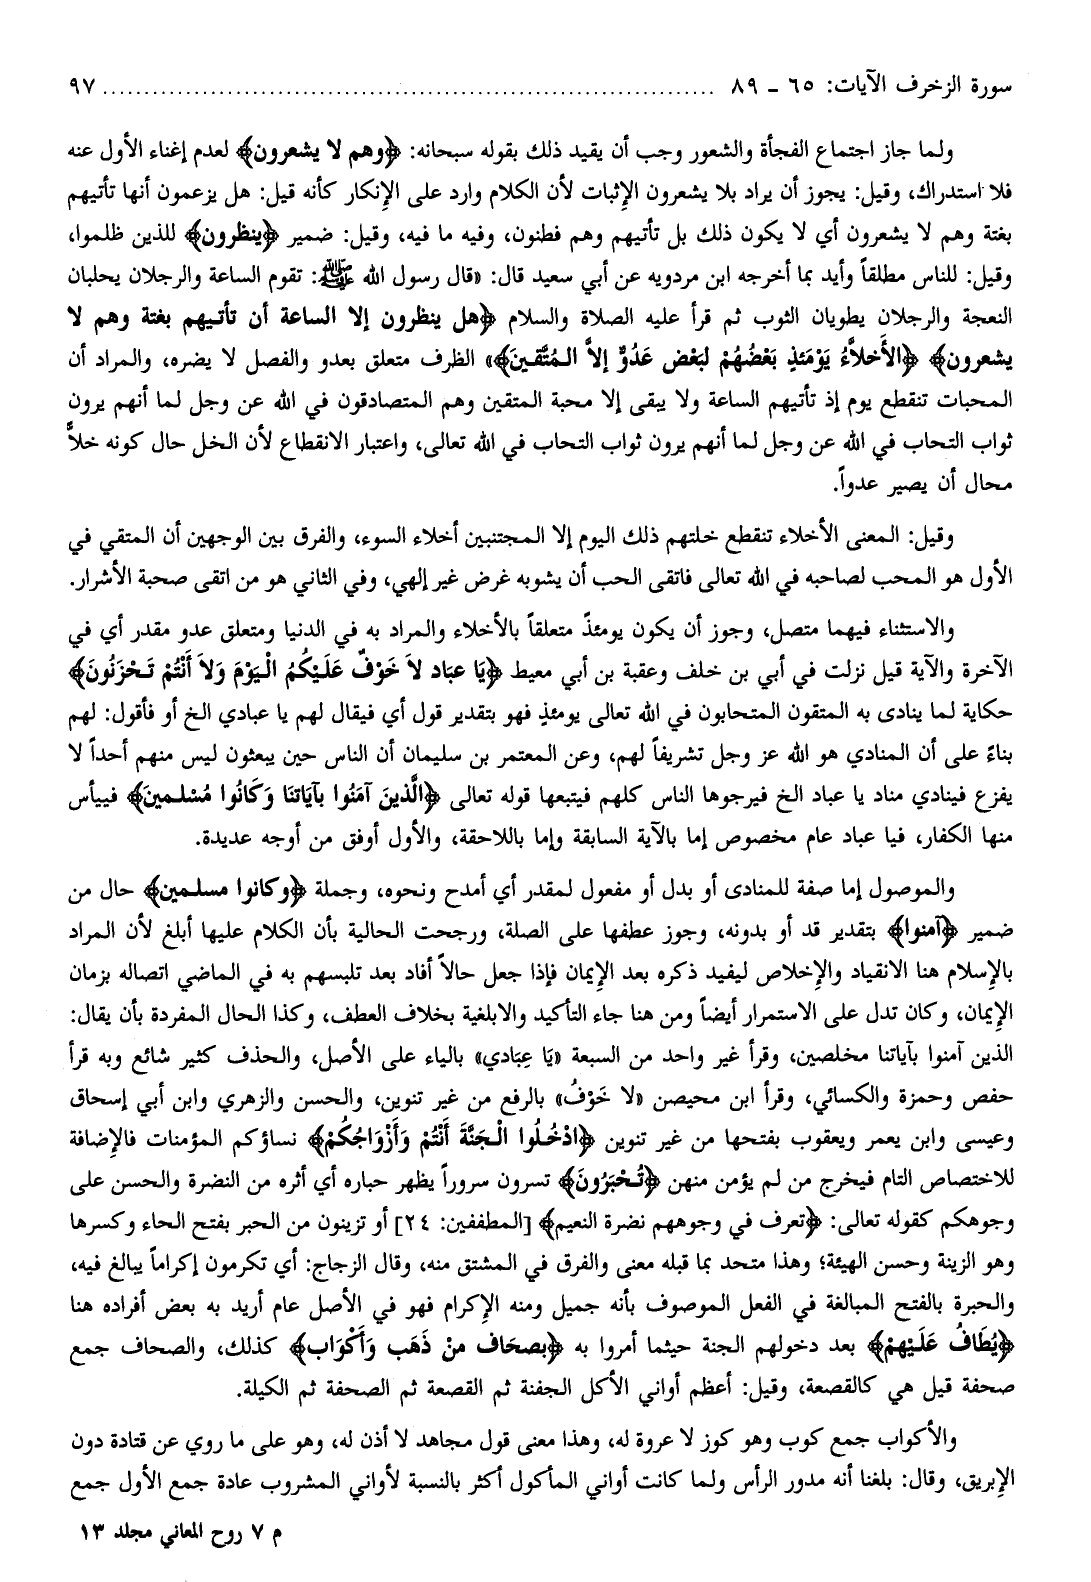 سورة الزخرف الآيات: ٦٥ ـ ٨٩ ........................................................................... ٩٧
ولما جاز اجتماع الفجأة والشعور وجب أن يقيد ذلك بقوله سبحانه: ﴿وهم لا يشعرون﴾ لعدم إغناء الأول عنه
فلا استدراك، وقيل: يجوز أن يراد بلا يشعرون الإثبات لأن الكلام وارد على الإنكار كأنه قيل: هل يزعمون أنها تأتيهم
بغتة وهم لا يشعرون أي لا يكون ذلك بل تأتيهم وهم فطنون، وفيه ما فيه، وقيل: ضمير ﴿ينظرون﴾ للذين ظلموا،
وقيل: للناس مطلقاً وأيد بما أخرجه ابن مردويه عن أبي سعيد قال: «قال رسول الله ﷺ: تقوم الساعة والرجلان يحلبان
النعجة والرجلان يطويان الثوب ثم قرأ عليه الصلاة والسلام ﴿هل ينظرون إلا الساعة أن تأتيهم بغتة وهم لا
يشعرون﴾ ﴿الأَخلاَّءُ يَوْمَئذٍ بَعْضُهُمْ لبَعْض عَدُوٌّ إلاَّ المُتَّقينَ﴾» الظرف متعلق بعدو والفصل لا يضره، والمراد أن
المحبات تنقطع يوم إذ تأتيهم الساعة ولا يبقى إلا محبة المتقين وهم المتصادقون في الله عن وجل لما أنهم يرون
ثواب التحاب في الله عن وجل لما أنهم يرون ثواب التحاب في الله تعالى، واعتبار الانقطاع لأن الخل حال كونه خلاًّ
محال أن يصير عدواً.
وقيل: المعنى الأخلاء تنقطع خلتهم ذلك اليوم إلا المجتنبين أخلاء السوء، والفرق بين الوجهين أن المتقي في
الأول هو المحب لصاحبه في الله تعالى فاتقى الحب أن يشوبه غرض غير إلهي، وفي الثاني هو من اتقى صحبة الأشرار.
والاستثناء فيهما متصل، وجوز أن يكون يومئذً متعلقاً بالأخلاء والمراد به في الدنيا ومتعلق عدو مقدر أي في
الآخرة والآية قيل نزلت في أبي بن خلف وعقبة بن أبي معيط ﴿يَا عبَاد لاَ خَوْفٌ عَلَيْكُمُ الْيَوْمَ وَلاَ أَنْتُمْ تَحْزَنُونَ﴾
حكاية لما ينادى به المتقون المتحابون في الله تعالى يومئذٍ فهو بتقدير قول أي فيقال لهم يا عبادي الخ أو فأقول: لهم
بناءً على أن المنادي هو الله عز وجل تشريفاً لهم، وعن المعتمر بن سليمان أن الناس حين يبعثون ليس منهم أحداً لا
يفزع فينادي مناد يا عباد الخ فيرجوها الناس كلهم فيتبعها قوله تعالى ﴿الَّذينَ آمَنُوا بآيَاتنَا وَكَانُوا مُسْلمينَ﴾ فييأس
منها الكفار، فيا عباد عام مخصوص إما بالآية السابقة وإما باللاحقة، والأول أوفق من أوجه عديدة.
والموصول إما صفة للمنادى أو بدل أو مفعول لمقدر أي أمدح ونحوه، وجملة ﴿وكانوا مسلمين﴾ حال من
ضمير ﴿آمنوا﴾ بتقدير قد أو بدونه، وجوز عطفها على الصلة، ورجحت الحالية بأن الكلام عليها أبلغ لأن المراد
بالإسلام هنا الانقياد والإخلاص ليفيد ذكره بعد الإيمان فإذا جعل حالاً أفاد بعد تلبسهم به في الماضي اتصاله بزمان
الإيمان، وكان تدل على الاستمرار أيضاً ومن هنا جاء التأكيد والابلغية بخلاف العطف، وكذا الحال المفردة بأن يقال:
الذين آمنوا بآياتنا مخلصين، وقرأ غير واحد من السبعة «يَا عِبَادي» بالياء على الأصل، والحذف كثير شائع وبه قرأ
حفص وحمزة والكسائي، وقرأ ابن محيصن «لا خَوْفُ» بالرفع من غير تنوين، والحسن والزهري وابن أبي إسحاق
وعيسى وابن يعمر ويعقوب بفتحها من غير تنوين ﴿ادْخُلُوا الْجَنَّةَ أَنْتُمْ وَأَزْوَاجُكُمْ﴾ نساؤكم المؤمنات فالإضافة
للاختصاص التام فيخرج من لم يؤمن منهن ﴿تُحْبَرُونَ﴾ تسرون سروراً يظهر حباره أي أثره من النضرة والحسن على
وجوهكم كقوله تعالى: ﴿تعرف في وجوههم نضرة النعيم﴾ [المطففين: ٢٤] أو تزينون من الحبر بفتح الحاء وكسرها
وهو الزينة وحسن الهيئة؛ وهذا متحد بما قبله معنى والفرق في المشتق منه، وقال الزجاج: أي تكرمون إكراماً يبالغ فيه،
والحبرة بالفتح المبالغة في الفعل الموصوف بأنه جميل ومنه الإكرام فهو في الأصل عام أريد به بعض أفراده هنا
﴿يُطَافُ عَلَيْهمْ﴾ بعد دخولهم الجنة حيثما أمروا به ﴿بصحَاف منْ ذَهَب وَأَكْوَاب﴾ كذلك، والصحاف جمع
صحفة قيل هي كالقصعة، وقيل: أعظم أواني الأكل الجفنة ثم القصعة ثم الصحفة ثم الكيلة.
والأكواب جمع كوب وهو كوز لا عروة له، وهذا معنى قول مجاهد لا أذن له، وهو على ما روي عن قتادة دون
الإبريق، وقال: بلغنا أنه مدور الرأس ولما كانت أواني المأكول أكثر بالنسبة لأواني المشروب عادة جمع الأول جمع
م ٧ روح المعاني مجلد ١٣